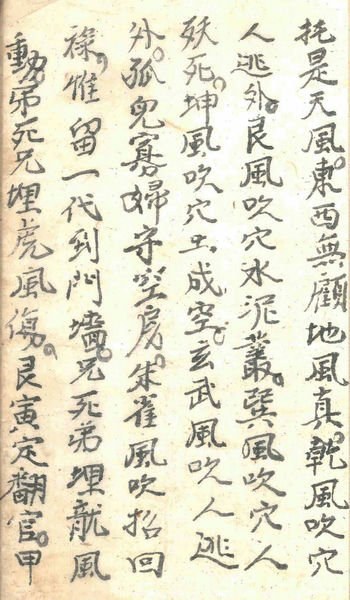 托是天風東西無顧地風真乾風吹穴
人逃外艮風吹穴水泥叢巽風吹穴人
殀死坤風吹穴土成空玄武風吹人逃
外孤兒寡婦守空房朱雀風吹招回
祿惟留一代到門墻兄死弟埋龍風
動弟死兄埋虎風傷艮寅定翻官甲